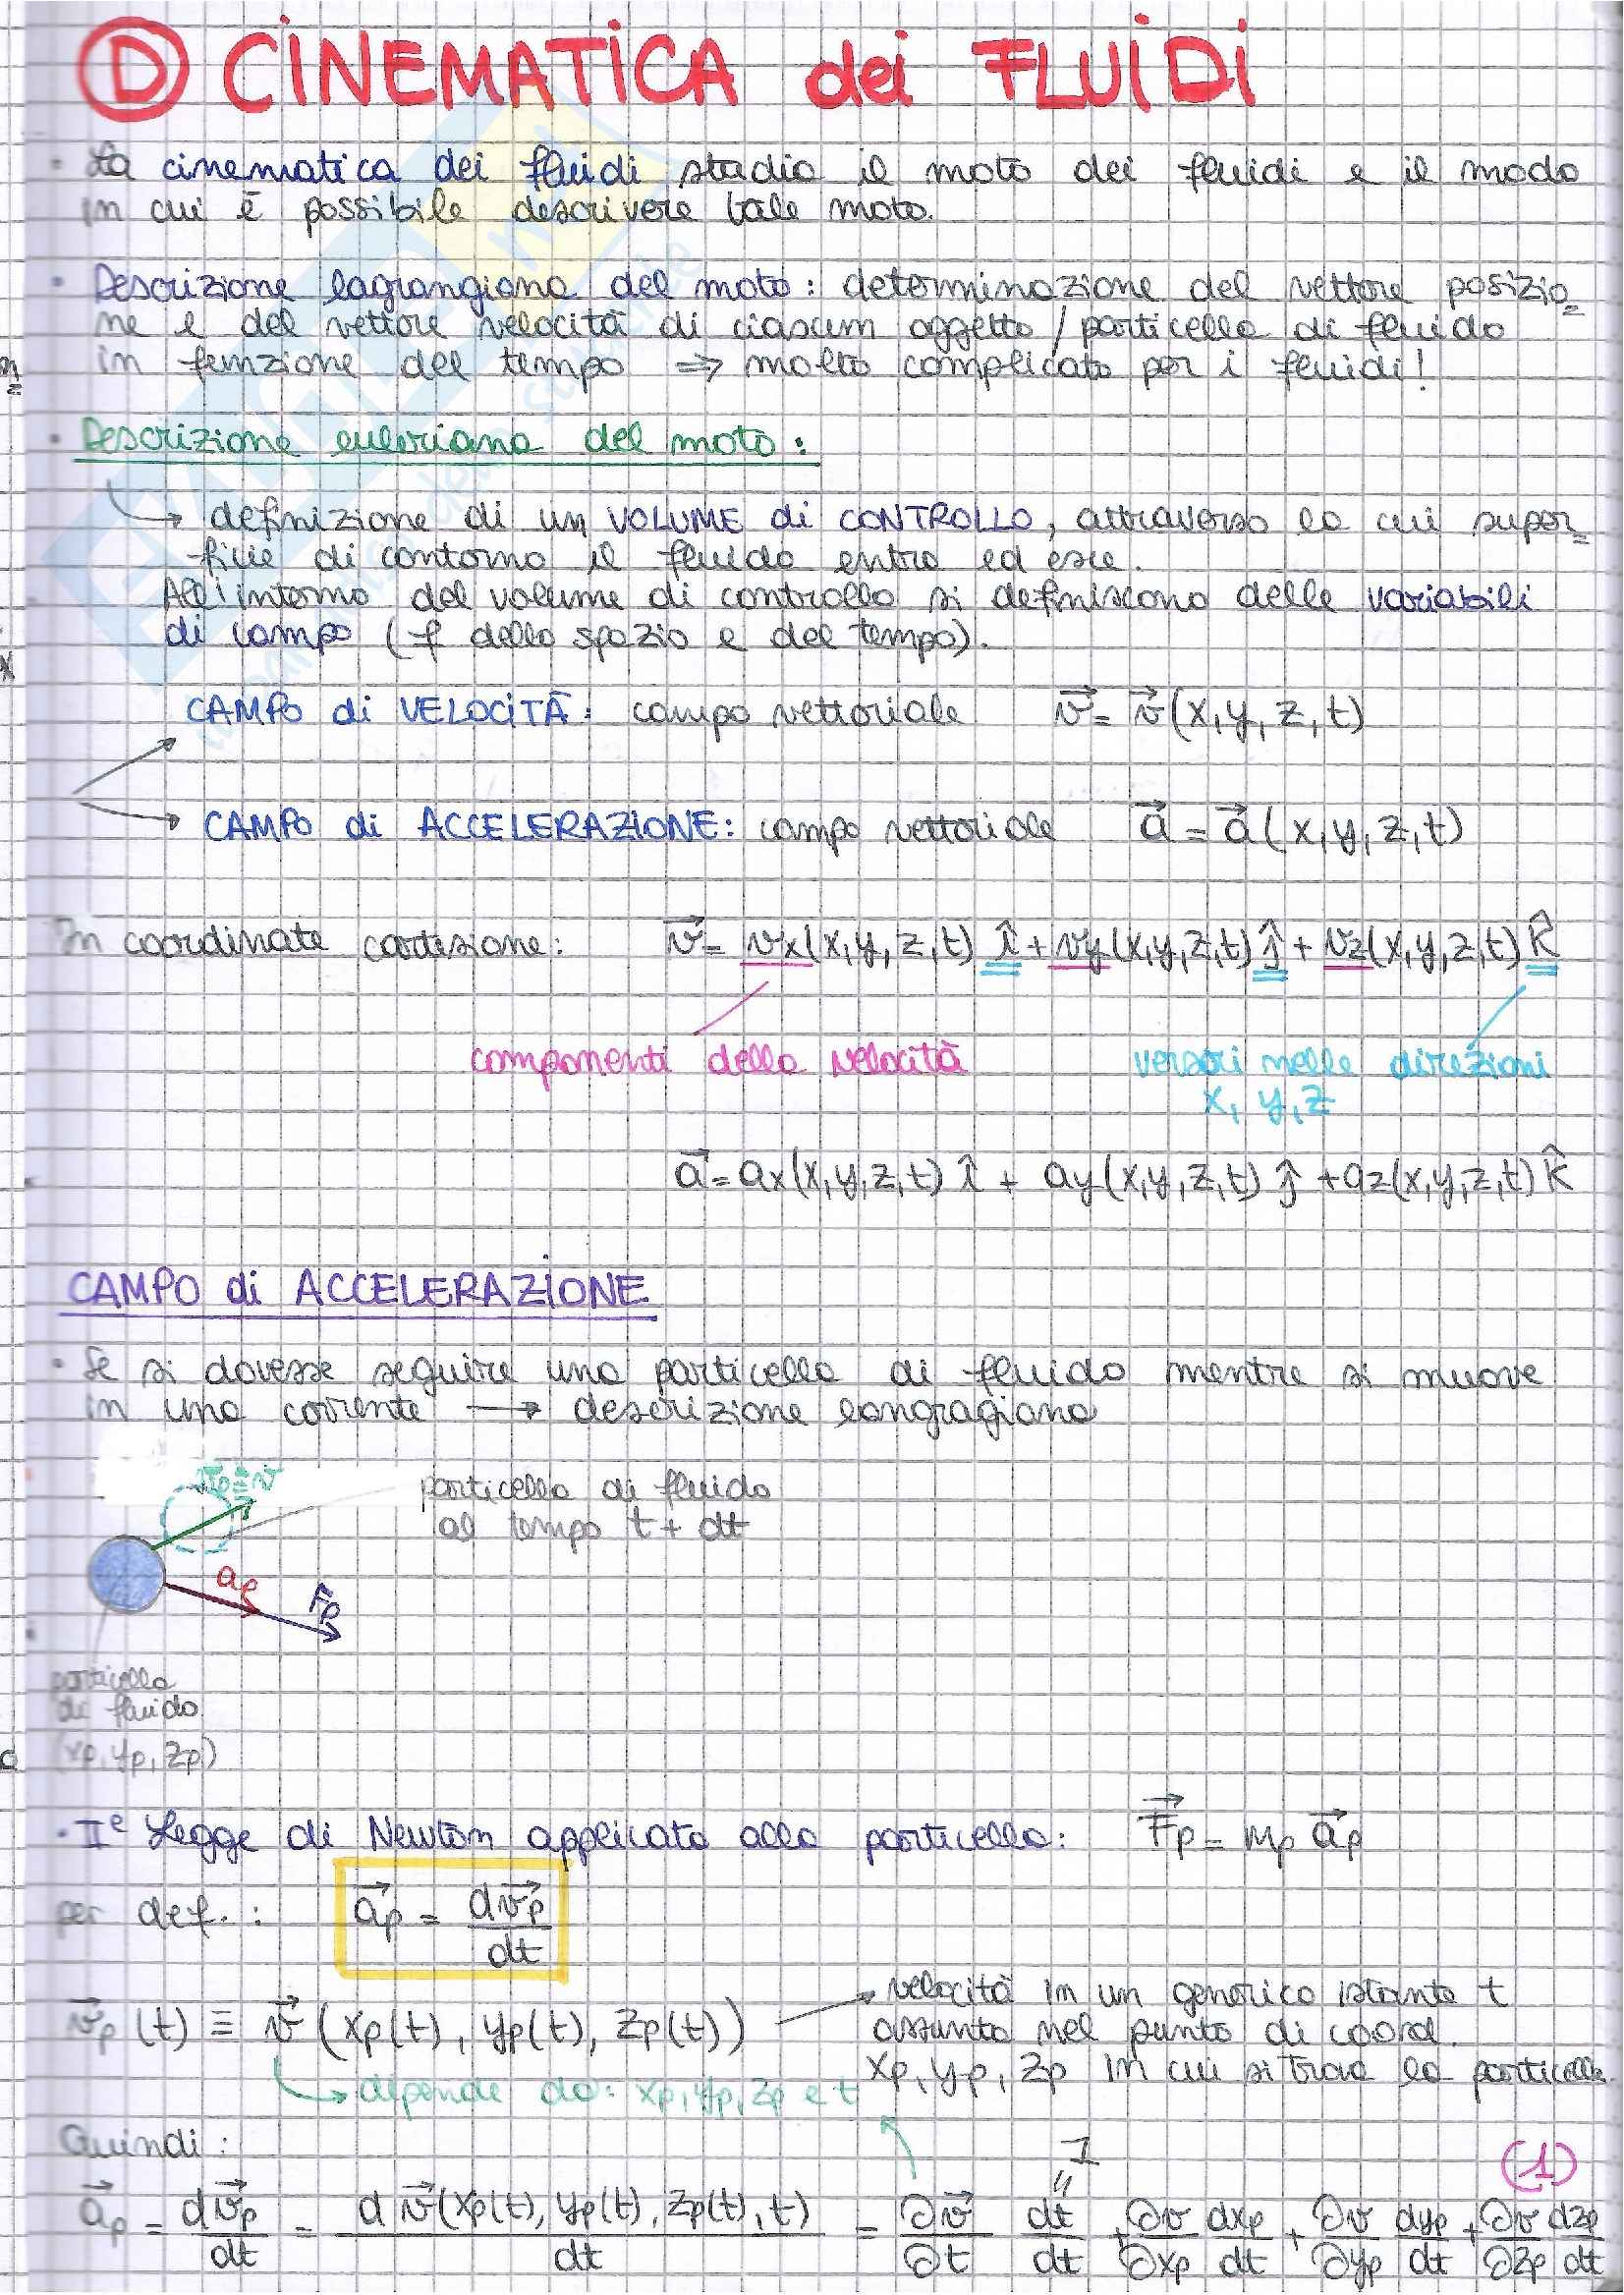 D CINEMATICA dei FLUIDI
· La cinematica dei fluidi studia il moto dei fluidi e il modo
in cui è possibile descrivere tale moto.
· Descrizione lagrangiana del moto: determinazione del vettore posizio=
ne e del vettore velocità di ciascun oggetto/particella di fluido
in funzione del tempo ⇒ molto complicato per i fluidi!
· Descrizione euleriana del moto:
↳ definizione di un VOLUME di CONTROLLO, attraverso la cui super=
ficie di contorno il fluido entra ed esce.
All'interno del volume di controllo si definiscono delle variabili
di campo (f dello spazio e del tempo).
CAMPO di VELOCITÀ: campo vettoriale v⃗ = v⃗(x,y,z,t)
→ CAMPO di ACCELERAZIONE: campo vettoriale a⃗ = a⃗(x,y,z,t)
In coordinate cartesiane: v⃗ = vx(x,y,z,t) î + vy(x,y,z,t) ĵ + vz(x,y,z,t) k̂
componenti della velocità versori nelle direzioni
x, y, z
a⃗ = ax(x,y,z,t) î + ay(x,y,z,t) ĵ + az(x,y,z,t) k̂
CAMPO di ACCELERAZIONE
· Se si dovesse seguire una particella di fluido mentre si muove
in una corrente → descrizione langragiana
v⃗p ≡ v⃗ particella di fluido
al tempo t + dt
ap
Fp
particella
di fluido
(xp, yp, zp)
· Iᵉ Legge di Newton applicata alla particella: F⃗p = mp a⃗p
per def.: a⃗p = dv⃗p/dt
v⃗p(t) ≡ v⃗(xp(t), yp(t), zp(t)) → velocità in un generico istante t
assunta nel punto di coord.
xp, yp, zp in cui si trova la particella.
↳ dipende da: xp, yp, zp e t
Quindi: 1 (1)
a⃗p = dv⃗p/dt = d v⃗(xp(t), yp(t), zp(t), t)/dt = ∂v⃗/∂t dt/dt + ∂v/∂xp dxp/dt + ∂v/∂yp dyp/dt + ∂v/∂zp dzp/dt